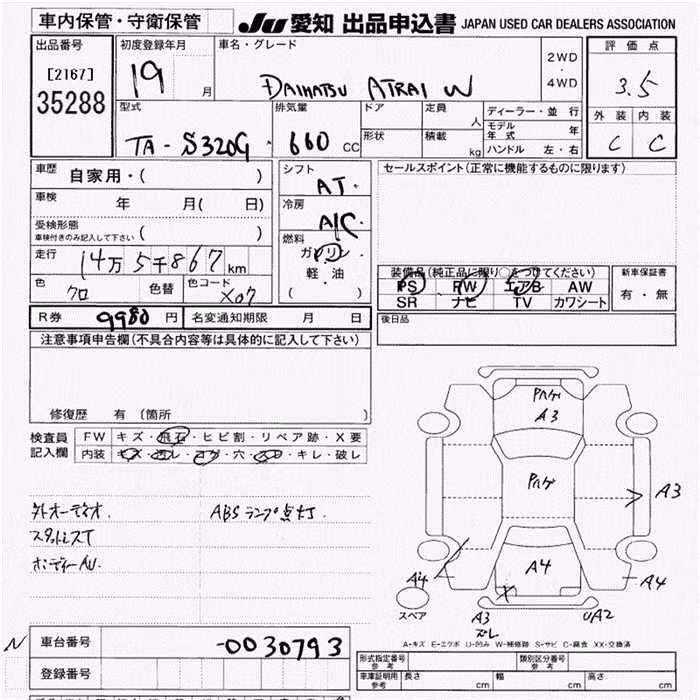 車内保管・守衛保管
JU 愛知 出品申込書 JAPAN USED CAR DEALERS ASSOCIATION
出品番号
[2167]
35288
初度登録年月
19 月
車名・グレード
DAIHATSU ATRAI W
2WD
・
4WD
評価点
3.5
外装 内装
C C
型式
TA- S320G
排気量
660 CC
ドア
形状
定員
人
積載
kg
ディーラー・並 行
モデル年式 年
ハンドル 左・右
車歴
自家用・( )
車検 年 月( 日)
受検形態
車検付きのみ記入して下さい ( )
走行
14万5千867km
色 クロ 色替 色コード X07
シフト
AT.
冷房
A/C.
燃料
ガソリン
軽・油
( )
セールスポイント(正常に機能するものに限ります)
装備品(純正品に限り○をつけてください)
PS PW エアB AW
SR ナビ TV カワシート
新車保証書
有・無
R券 9980 円 名変通知期限 月 日
後日品
注意事項申告欄(不具合内容等は具体的に記入して下さい)
修復歴 有(箇所
検査員
記入欄
FW キズ・飛石・ヒビ割・リペア跡・X要
内装 ・穴・ ・キレ・破レ
外オーディオ. ABSランプ点灯.
スタットレスT
Pハゲ
A3
Pハゲ
A3
A4
A4
A4
X
スペア
A3
ズレ
UA2
A-キズ E-エクボ U-凹み W-補修跡 S-サビ C-腐食 XX-交換済
N 車台番号 -0030793
登録番号
形式指定番号
参考
類別区分番号
参考
車庫証明用
参考
長さ cm 幅 cm 高さ cm